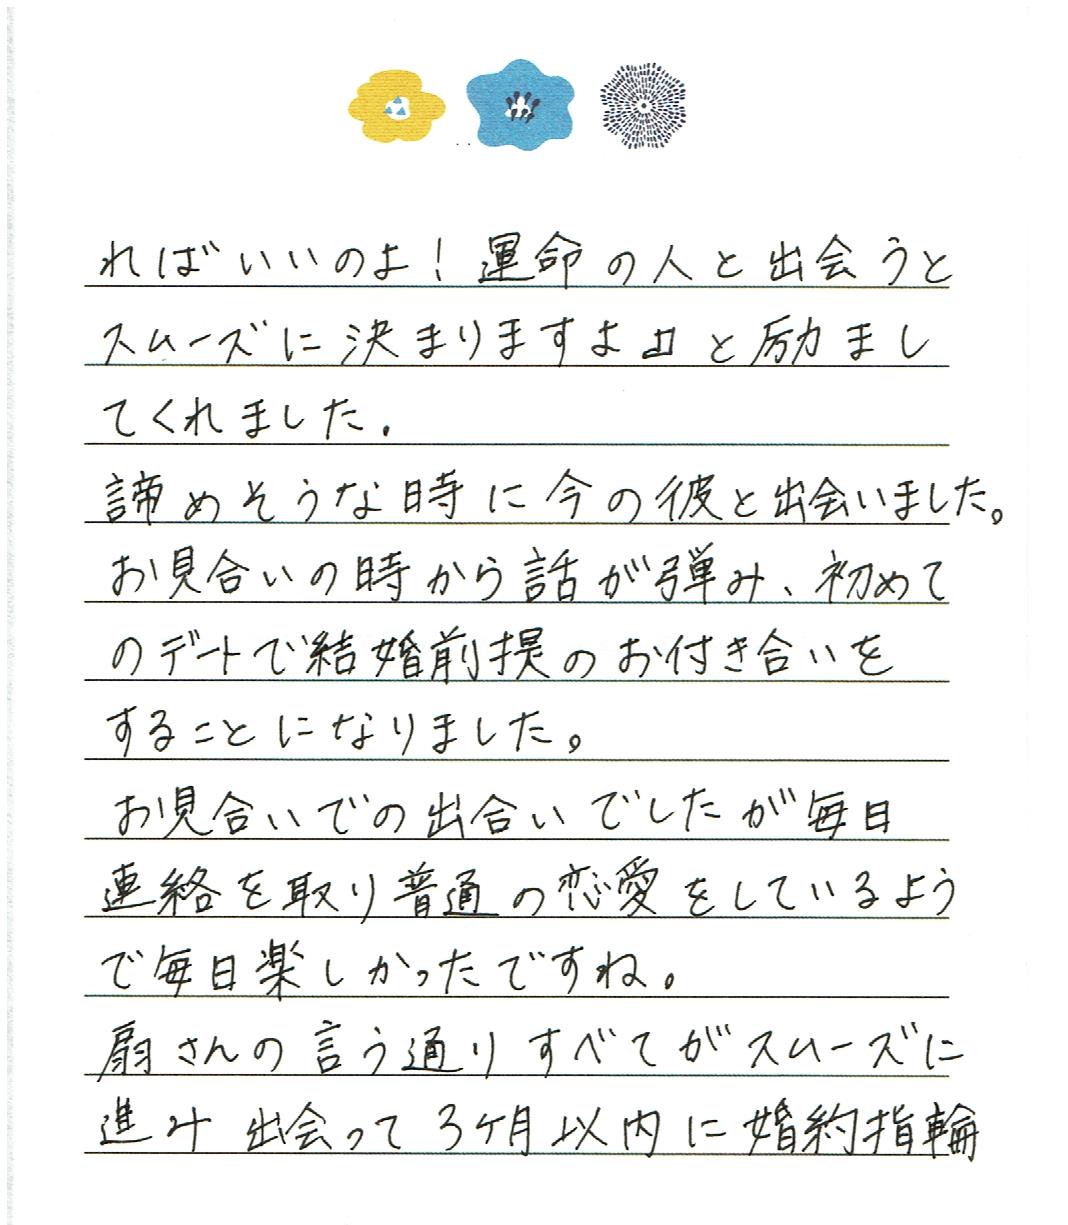 ればいいのよ！運命の人と出会うと
スムーズに決まりますよ』と励まし
てくれました.
諦めそうな時に今の彼と出会いました。
お見合いの時から話が弾み、初めて
のデートで結婚前提のお付き合いを
することになりました。
お見合いでの出合いでしたが毎日
連絡を取り普通の恋愛をしているよう
で毎日楽しかったですね。
扇さんの言う通りすべてがスムーズに
進み出会って3ケ月以内に婚約指輪